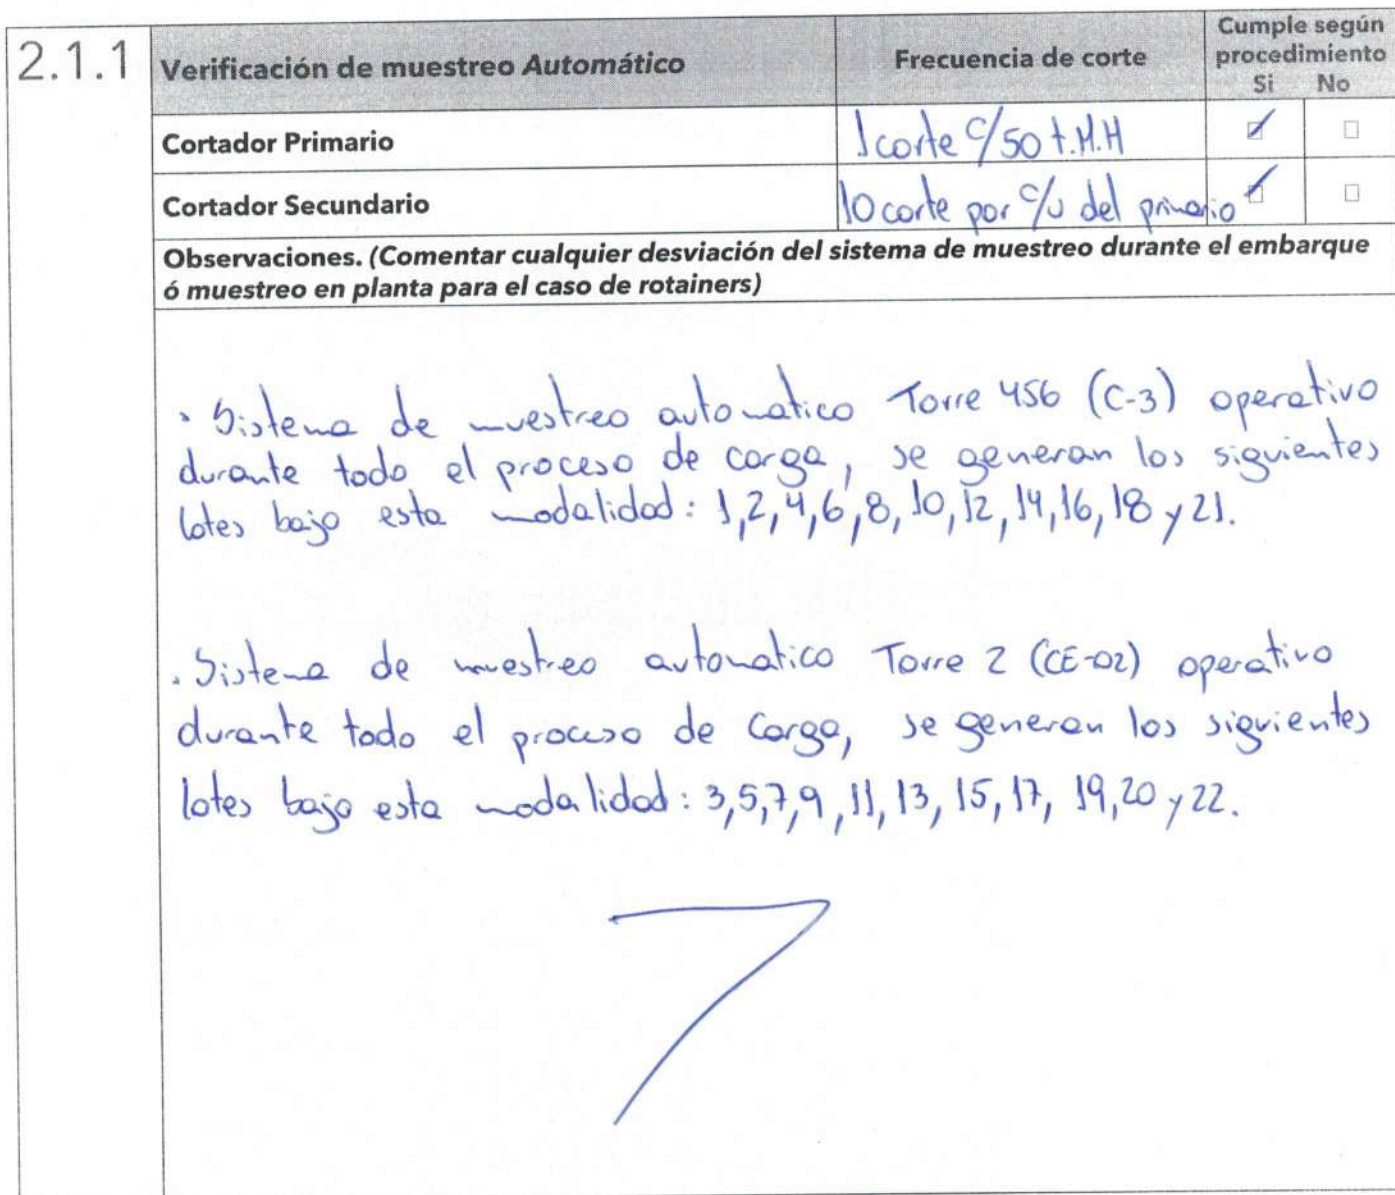 2.1.1
Verificación de muestreo Automático
Frecuencia de corte
Cumple según
procedimiento
Si No
Cortador Primario
1 corte c/50 t.M.H
Cortador Secundario
10 corte por c/u del primario
Observaciones. (Comentar cualquier desviación del sistema de muestreo durante el embarque
ó muestreo en planta para el caso de rotainers)
· Sistema de muestreo automatico Torre 456 (C-3) operativo
durante todo el proceso de carga, se generan los siguientes
lotes bajo esta modalidad: 1,2,4,6,8,10,12,14,16,18 y 21.
· Sistema de muestreo automatico Torre 2 (CE-02) operativo
durante todo el proceso de carga, se generan los siguientes
lotes bajo esta modalidad: 3,5,7,9,11,13,15,17,19,20 y 22.